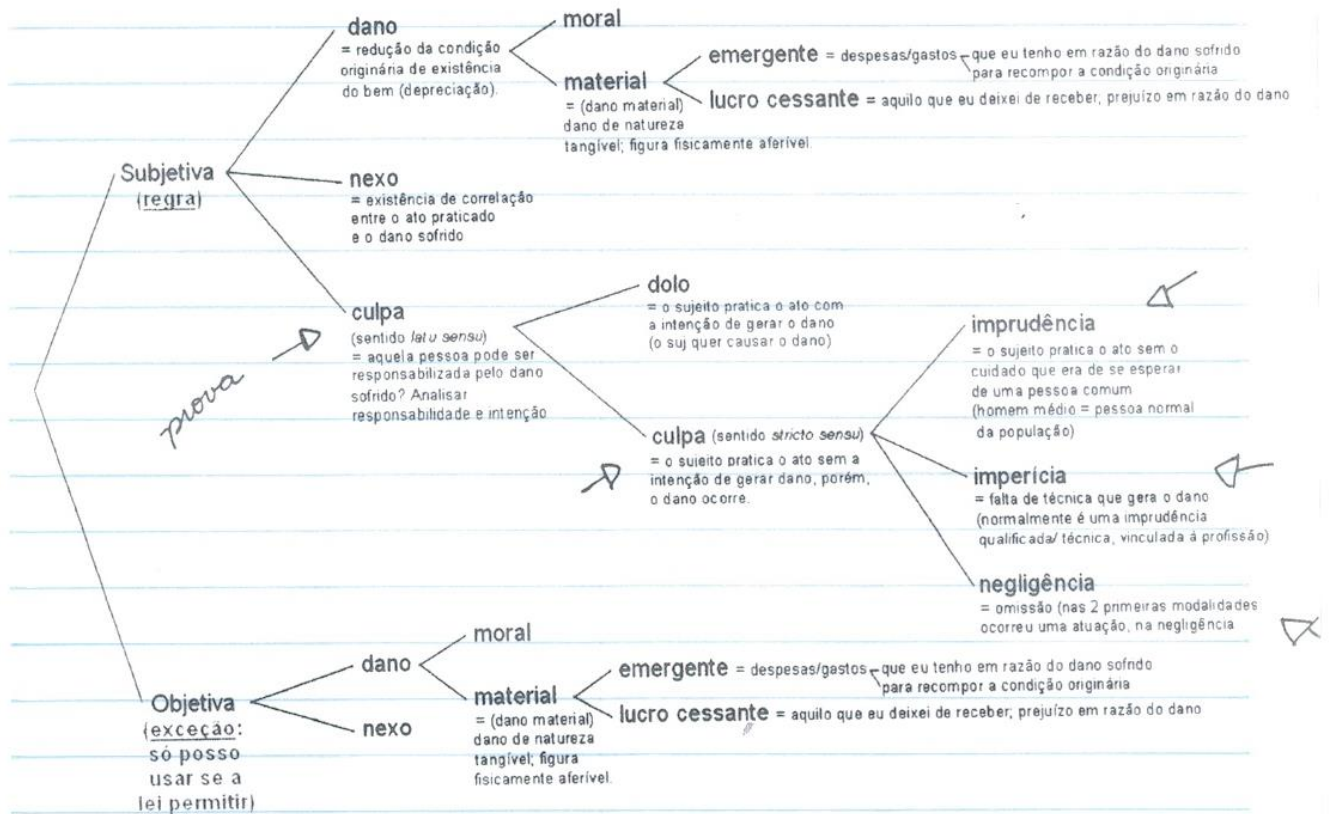 dano
= redução da condição
originária de existência
do bem (depreciação).
moral
material
= (dano material)
dano de natureza
tangível; figura fisicamente aferível.
emergente = despesas/gastos que eu tenho em razão do dano sofrido
para recompor a condição originária
lucro cessante = aquilo que eu deixei de receber; prejuízo em razão do dano
Subjetiva
(regra)
nexo
= existência de correlação
entre o ato praticado
e o dano sofrido
culpa
(sentido latu sensu)
= aquela pessoa pode ser
responsabilizada pelo dano
sofrido? Analisar
responsabilidade e intenção
prova
dolo
= o sujeito pratica o ato com
a intenção de gerar o dano
(o suj quer causar o dano)
culpa (sentido stricto sensu)
= o sujeito pratica o ato sem a
intenção de gerar dano, porém,
o dano ocorre.
imprudência
= o sujeito pratica o ato sem o
cuidado que era de se esperar
de uma pessoa comum
(homem médio = pessoa normal
da população)
imperícia
= falta de técnica que gera o dano
(normalmente é uma imprudência
qualificada/ técnica, vinculada á profissão)
negligência
= omissão (nas 2 primeiras modalidades
ocorreu uma atuação, na negligência
Objetiva
(exceção:
só posso
usar se a
lei permitir)
dano
nexo
moral
material
= (dano material)
dano de natureza
tangível; figura
fisicamente aferível.
emergente = despesas/gastos que eu tenho em razão do dano sofrido
para recompor a condição originária
lucro cessante = aquilo que eu deixei de receber; prejuízo em razão do dano